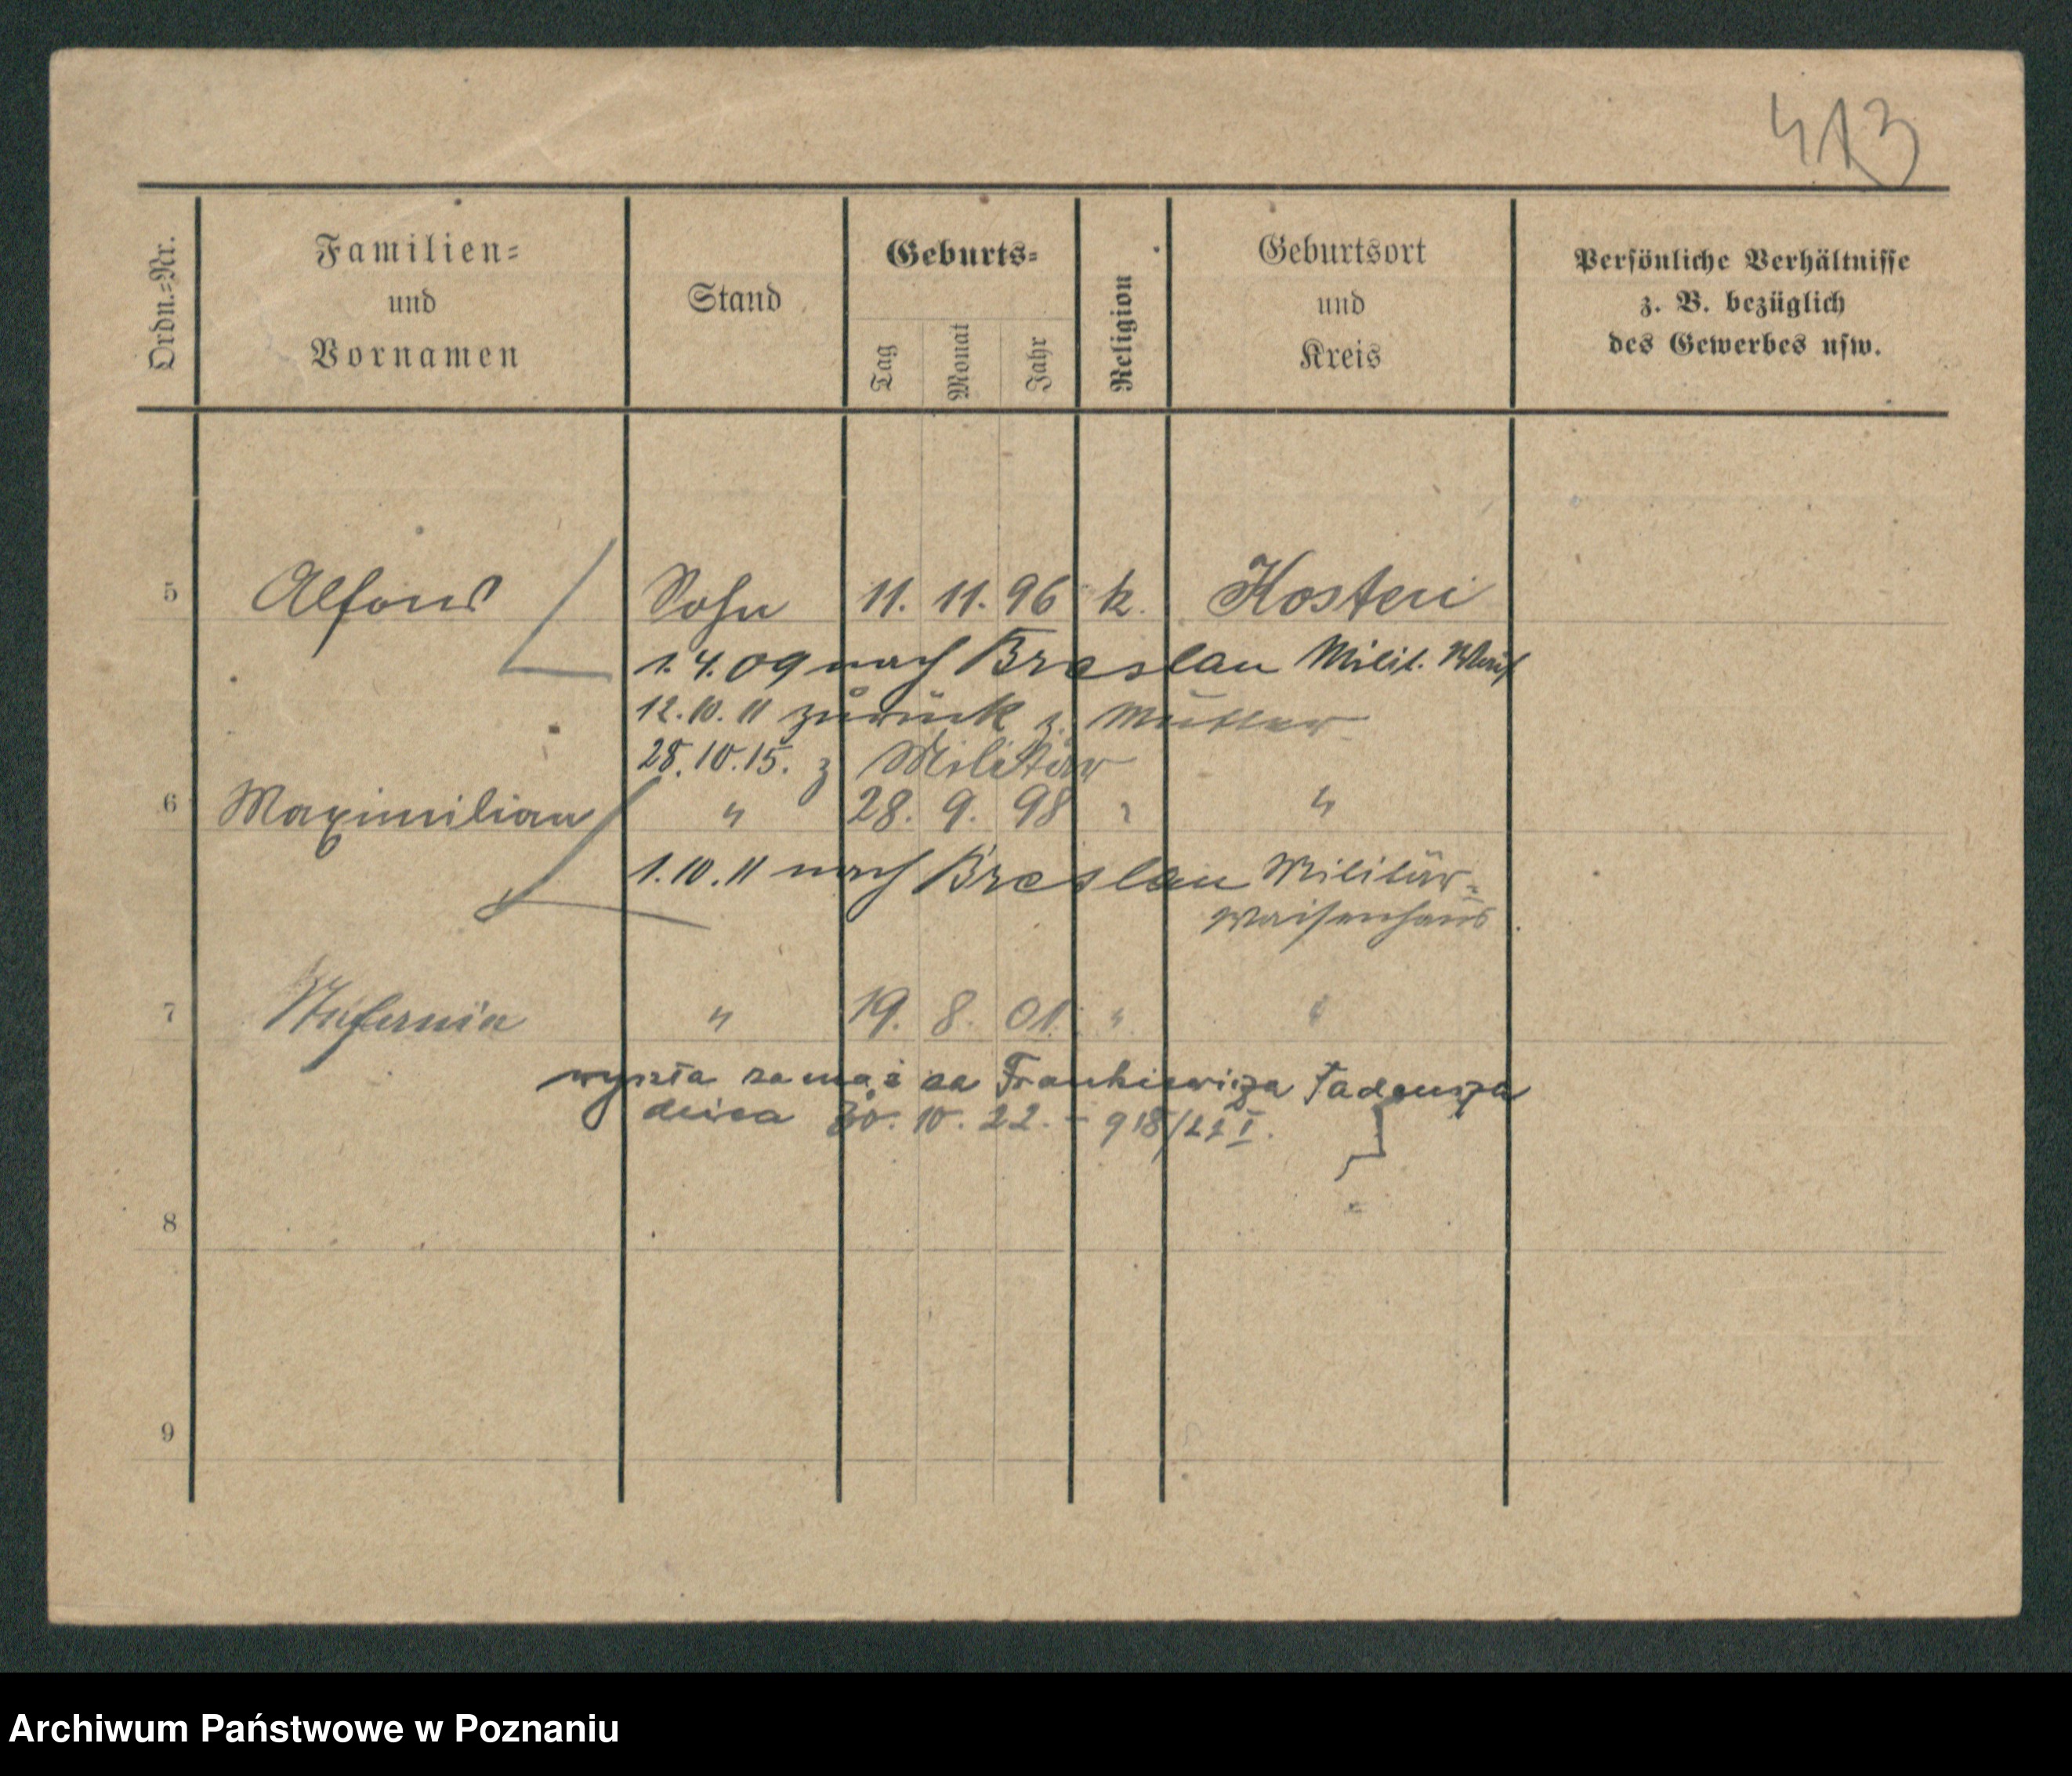 413
Ordn.-Nr.
Familien-
und
Vornamen
Stand
Geburts-
Tag
Monat
Jahr
Religion
Geburtsort
und
Kreis
Persönliche Verhältnisse
z. B. bezüglich
des Gewerbes usw.
5 Alfons Sohn 11. 11. 96 k. Kosten
1.4.09 nach Breslau Milit.
12.10.11 zurück z. Mutter
28.10.15. z Militär
6 Maximilian " 28. 9. 98 " "
1.10.11 nach Breslau Militär-
Waisenhaus.
7 " 19. 8. 01. " "
wyszła za mąż za Frankiewicza Tadeusza
dnia 30. 10. 22. - 918/22 I.
8
9
Archiwum Państwowe w Poznaniu